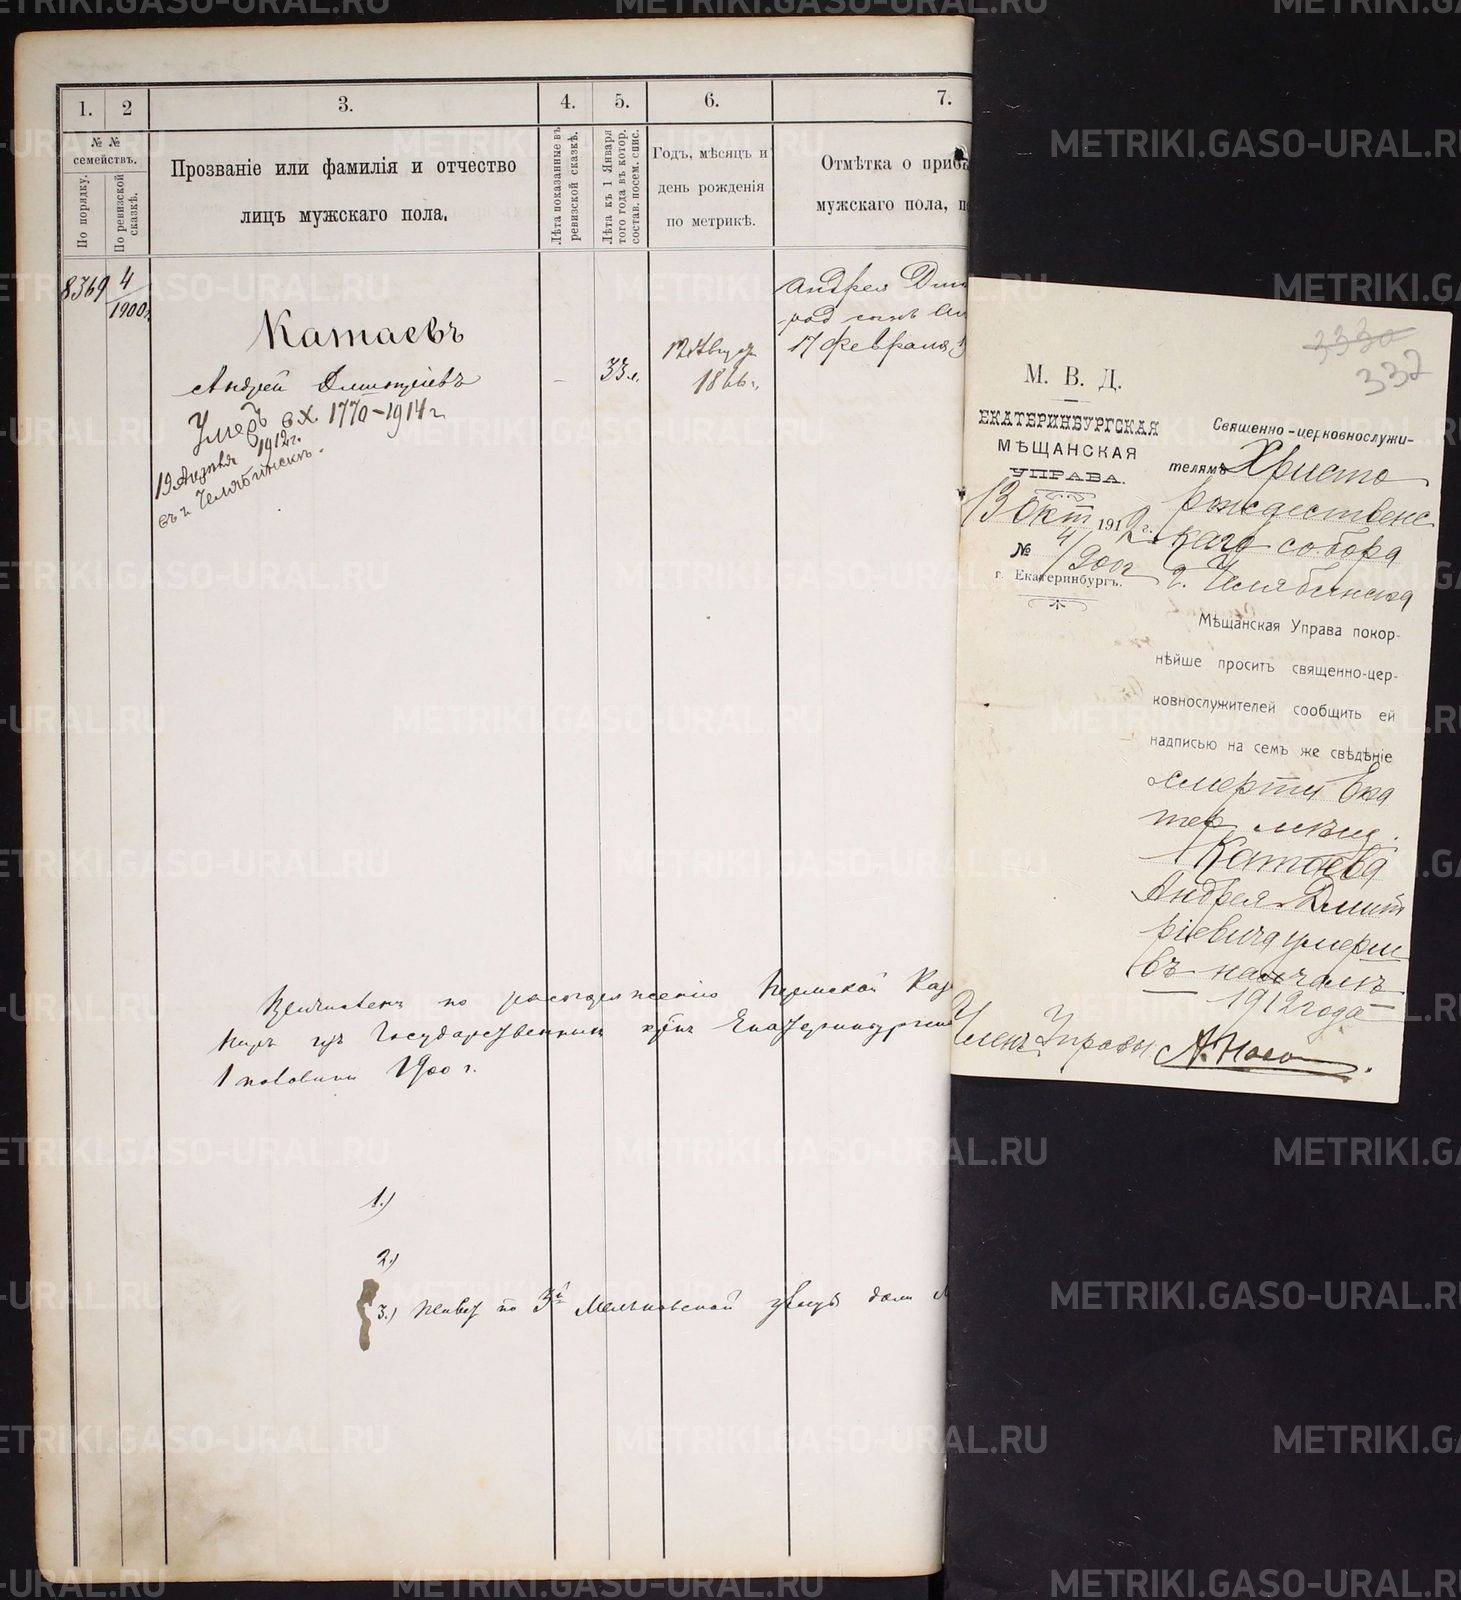 1.
2
3.
4.
5.
6.
7.
№ №
семействъ.
По порядку.
По ревизской
сказкѣ.
Прозваніе или фамилія и отчество
лицъ мужскаго пола.
Лѣта показанные въ
ревизской сказкѣ.
Лѣта къ 1 Января
того года въ котор.
состав. посем. спис.
Годъ, мѣсяцъ и
день рожденія
по метрикѣ.
Отмѣтка о приб
мужскаго пола, п
8369
4
1900г.
Катаевъ
Андрей Дмитріевъ
Умеръ вх. 1770-1914 г.
19 Апрѣля 1912г.
въ г. Челябинскѣ.
33 л.
12 Август
1866 г.
Андрея Дми
род сынъ
17 февраля
Вслѣдствіе по распоряженію Пермской Каз
изъ Государственныхъ Екатеринбургск
1 половины 1900 г.
1.)
2.)
3.) Живу по 3й Мельковской улицѣ домъ
3330
332
М. В. Д.
ЕКАТЕРИНБУРГСКАЯ
МѢЩАНСКАЯ
УПРАВА.
13 Окт 1912 г.
№ 4/900г
г. Екатеринбургъ.
Священно-церковнослужи-
телямъ Христо
рождественс
каго собора
г. Челябинска
Мѣщанская Управа покор-
нѣйше проситъ священно-цер-
ковнослужителей сообщить ей
надписью на семъ же свѣдѣніе
о смерти Ека
тер мѣщ.
Катаева
Андрея Дмит
ріевича умерш
въ началѣ
1912 года
Членъ Управы
METRIKI.GASO-URAL.RU